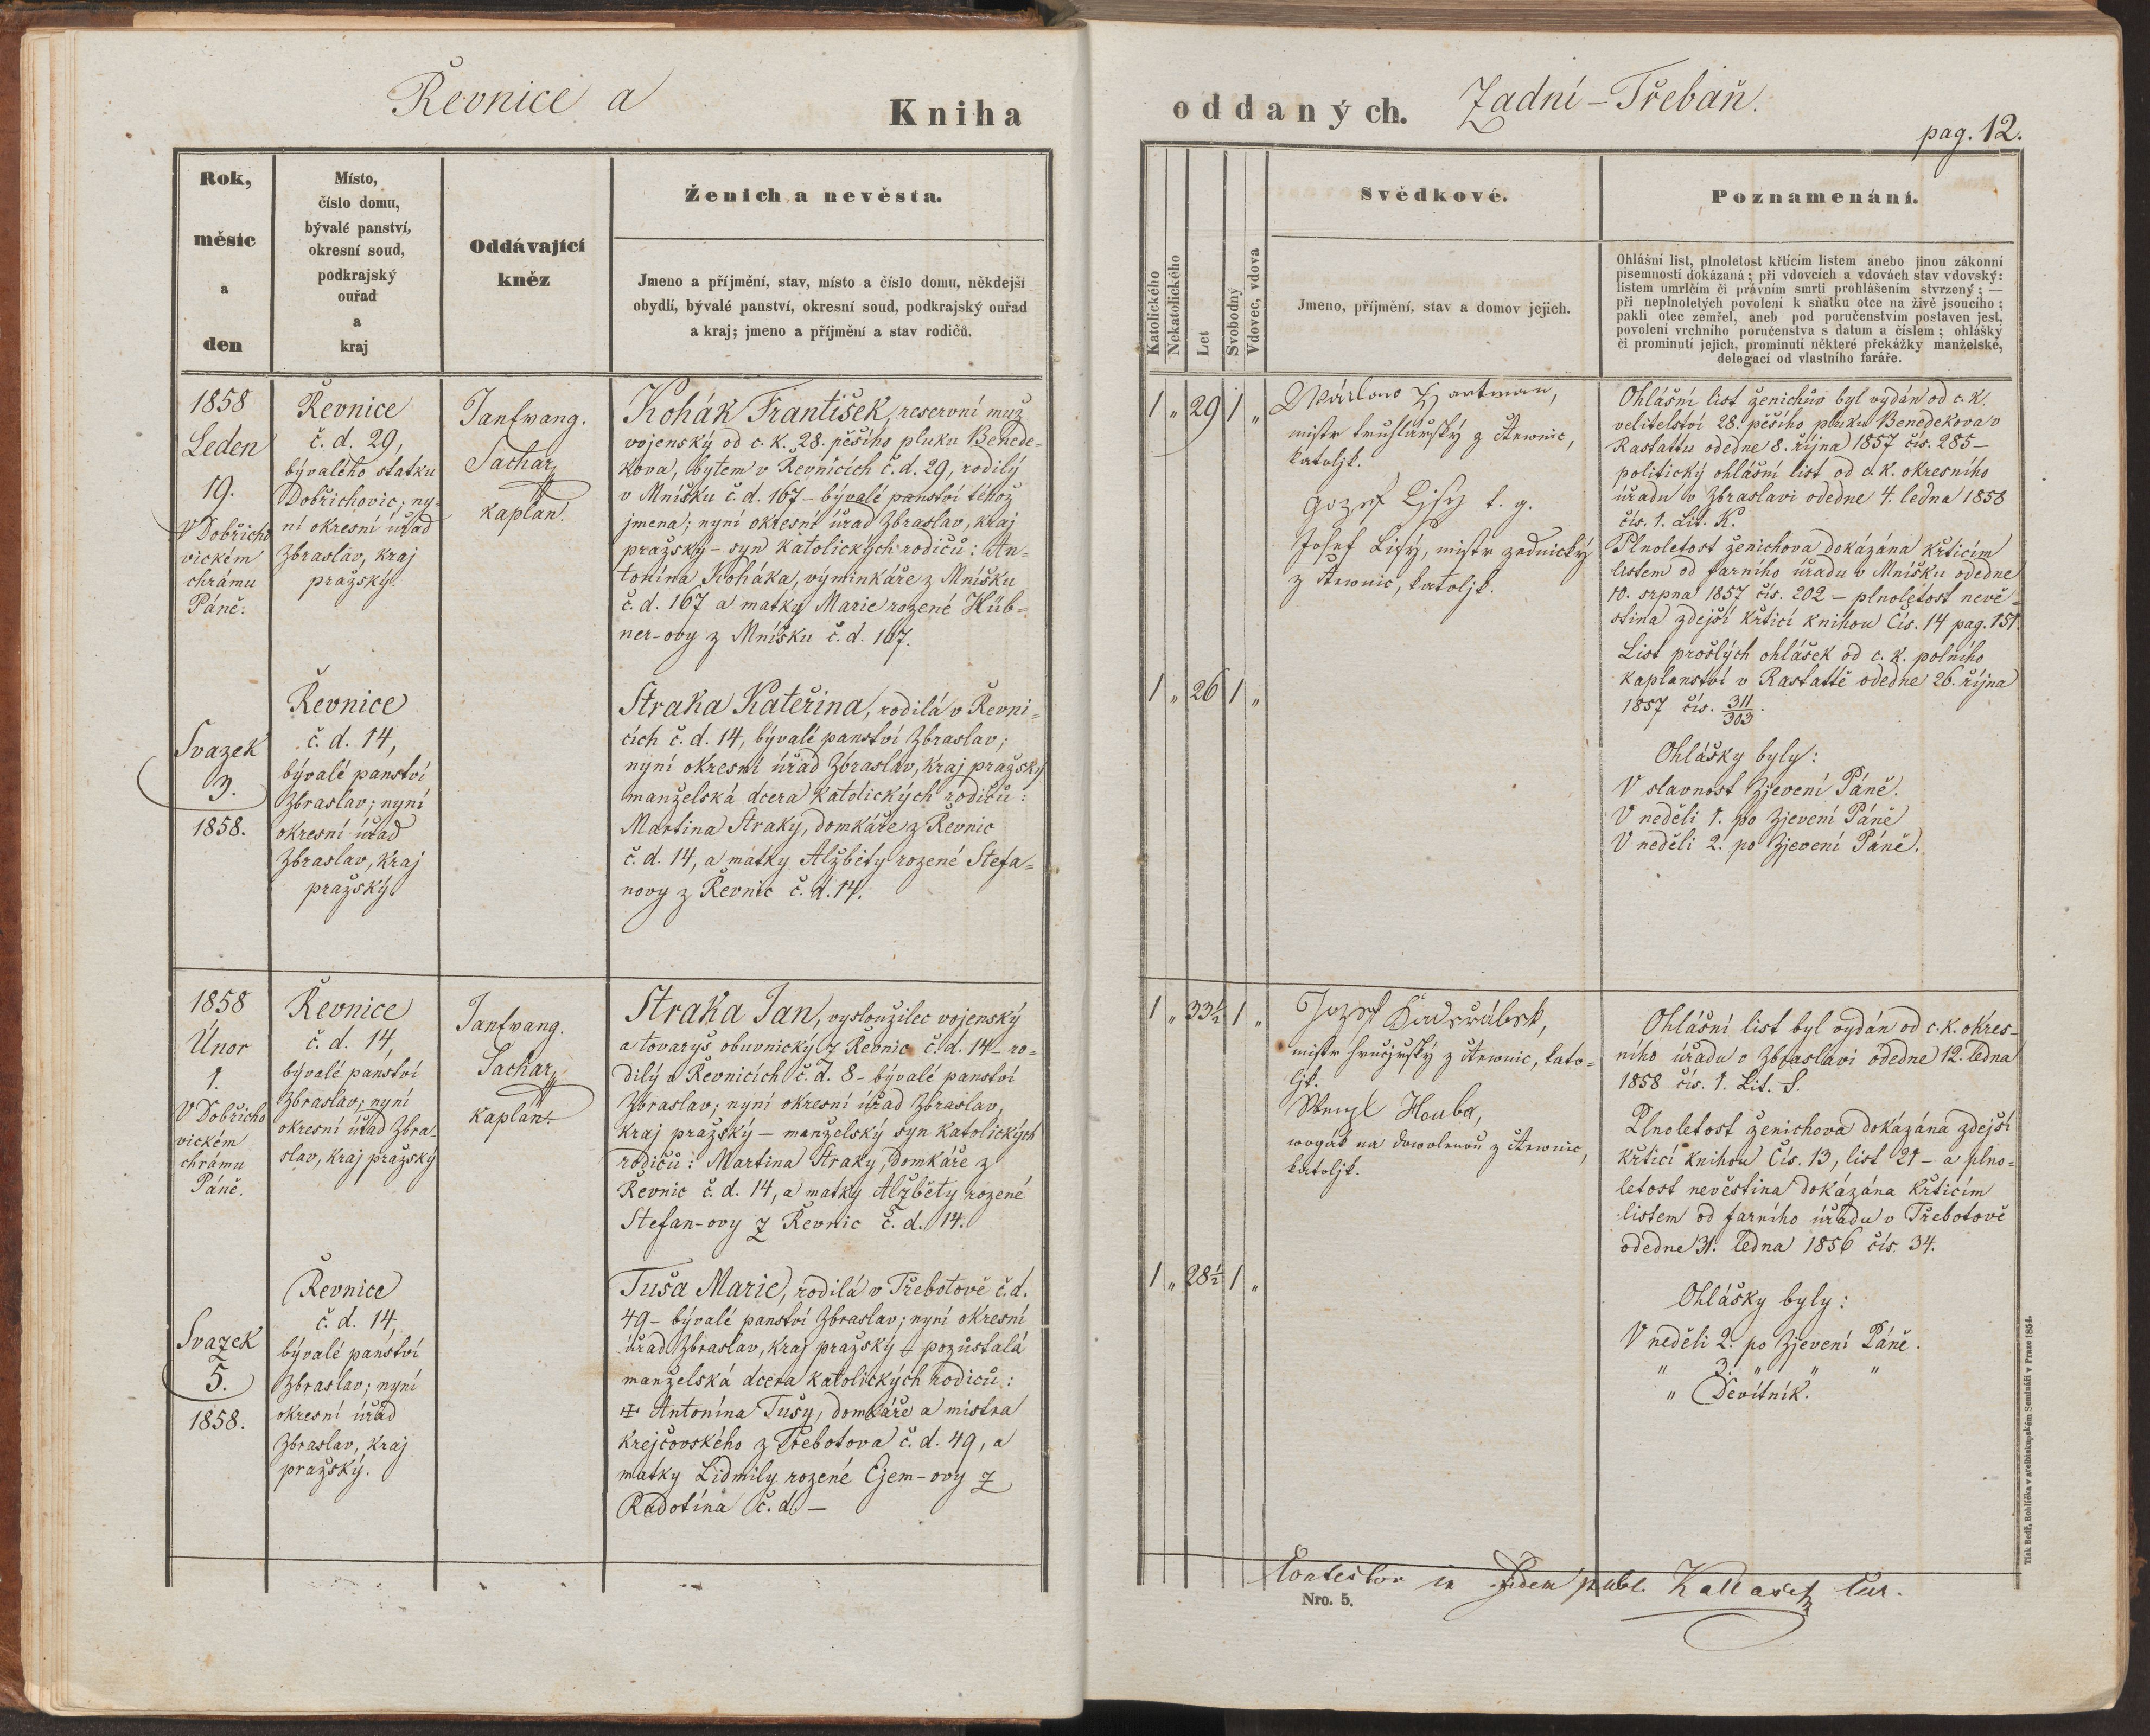 Řevnice a
Kniha
Rok,
měsíc
a
den
Místo,
číslo domu,
bývalé panství,
okresní soud,
podkrajský
ouřad
a
kraj
Oddávající
kněz
Ženich a nevěsta.
Jmeno a příjmění, stav, místo a číslo domu, někdejší
obydlí, bývalé panství, okresní soud, podkrajský ouřad
a kraj; jmeno a příjmění a stav rodičů.
1858
Leden
19.
V Dobřicho
vickém
chrámu
Páně.
Řevnice
č. d. 29,
bývalého statku
Dobřichovic; ny-
ní okresní úřad
Zbraslav, kraj
pražský.
Sachar
kaplan.
Kohák František, reservní muž
vojenský od c. k. 28. pěšího pluku Benede-
kova, bytem v Řevnicích č. d. 29, rodilý
v Mníšku č. d. 167 – bývalé panství téhož
jmena; nyní okresní úřad Zbraslav, kraj
pražský – syn katolických rodičů: An-
tonína Koháka, výminkáře z Mníšku
č. d. 167 a matky Marie rozené Hüb-
ner-ovy z Mníšku č. d. 167.
Svazek
3.
1858.
Řevnice
č. d. 14,
bývalé panství
Zbraslav; nyní
okresní úřad
Zbraslav, kraj
pražský
Straka Kateřina, rodilá v Řevni-
cích č. d. 14, bývalé panství Zbraslav;
nyní okresní úřad Zbraslav, kraj pražský
manželská dcera katolických rodičů:
Martina Straky, domkáře z Řevnic
č. d. 14, a matky Alžběty rozené Stefa-
novy z Řevnic č. d. 14.
1858
Únor
1.
V Dobřicho
vickém
chrámu
Páně.
Řevnice
č. d. 14,
bývalé panství
Zbraslav; nyní
okresní úřad Zbra-
slav, kraj pražský
Sachar
kaplan.
Straka Jan, vysloužilec vojenský
a tovaryš obuvnický z Řevnic č. d. 14 – ro-
dilý v Řevnicích č. d. 8 – bývalé panství
Zbraslav; nyní okresní úřad Zbraslav,
kraj pražský – manželský syn katolických
rodičů: Martina Straky, domkáře z
Řevnic č. d. 14, a matky Alžběty rozené
Stefan-ovy z Řevnic č. d. 14.
Svazek
5.
1858.
Řevnice
č. d. 14
bývalé panství
Zbraslav; nyní
okresní úřad
Zbraslav, kraj
pražský.
Tuša Marie, rodilá v Třebotově č. d.
49 – bývalé panství Zbraslav; nyní okresní
úřad Zbraslav, kraj pražský – pozůstalá
manželská dcera katolických rodičů:
Antonína Tušy, domkáře a mistra
krejčovského z Třebotova č. d. 49, a
matky Lidmily rozené Ejem-ovy z
Radotína č. d. –
oddaných.
Zadní-Třebaň.
pag. 12.
Katolického
Nekatolického
Let
Svobodný
Vdovec, vdova
Svědkové.
Jmeno, příjmění, stav a domov jejich.
Poznamenání.
Ohlášní list, plnoletost křtícím listem anebo jinou zákonní
písemností dokázaná; při vdovcích a vdovách stav vdovský:
listem umrlčím či právním smrti prohlášením stvrzený; —
při neplnoletých povolení k sňatku otce na živě jsoucího;
pakli otec zemřel, aneb pod poručenstvím postaven jest,
povolení vrchního poručenstva s datum a číslem; ohlášky
či prominutí jejich, prominutí některé překážky manželské,
delegací od vlastního faráře.
1 „ 29 1 „
Hartman,
mistr truhlářský z Řewnic,
katoljk.
Jozef Lisý t. g.
Josef Lisý, mistr zednický
z Řewnic, katoljk.
Ohlášní list ženichův byl vydán od c. k.
velitelství 28. pěšího pluku Benedekova v
Rastattu odedne 8. října 1857 čís. 285 –
politický ohlášní list od c. k. okresního
úřadu v Zbraslavi odedne 4. ledna 1858
čís. 1. Lit. K.
Plnoletost ženichova dokázána křticím
listem od farního úřadu v Mníšku odedne
10. srpna 1857 čís. 202 – plnoletost nevě-
stina zdejší křticí knihou Čís. 14 pag. 151.
List prošlých ohlášek od c. k. polního
kaplanství v Rastattě odedne 26. října
1857 čís. 311/303.
1 „ 26 1 „
Ohlášky byly:
V slavnost Zjevení Páně.
V neděli 1. po Zjevení Páně
V neděli 2. po Zjevení Páně.
1 „ 33½ 1 „
Jozef
mistr z Řewnic, kato-
ljk.
Wenzl Houba,
woják na dowolenou z Řewnic,
katoljk.
Ohlášní list byl vydán od c. k. okres-
ního úřadu v Zbraslavi odedne 12. ledna
1858 čís. 1. Lit. S.
Plnoletost ženichova dokázána zdejší
křticí knihou Čís. 13, list 21 – a plno-
letost nevěstina dokázána křticím
listem od farního úřadu v Třebotově
odedne 31. ledna 1856 čís. 34.
1 „ 28½ 1 „
Ohlášky byly:
V neděli 2. po Zjevení Páně.
„ 3. „ „ „
„ Devítník.
in fidem publ. Kallasch Cur.
Nro. 5.
Tisk Bedř. Rohlíčka v arcibiskupském Semináři v Praze 1854.